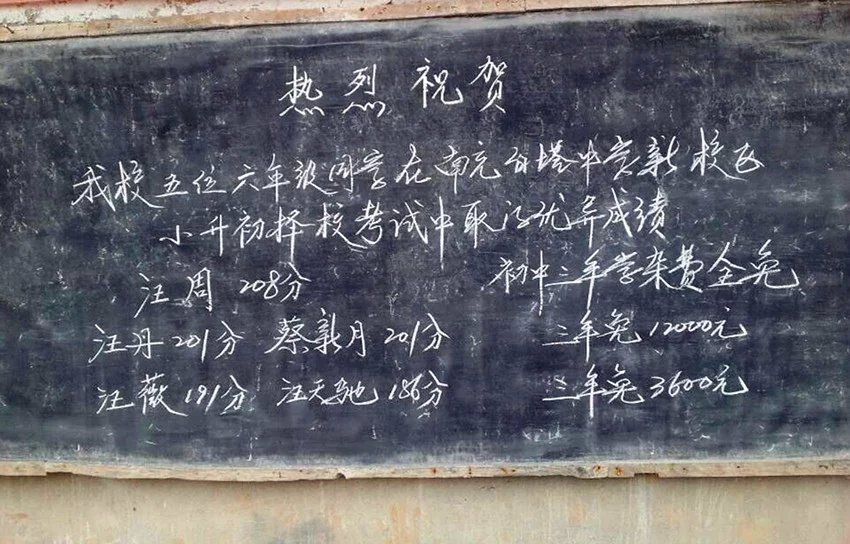 热烈祝贺
我校五位六年级同学在南充白塔中学新校区
小升初择校考试中取得优异成绩
汪周 208分 初中三年学杂费全免
汪丹 201分 蔡新月 201分 三年免12000元
汪薇 191分 汪天驰 186分 三年免3600元